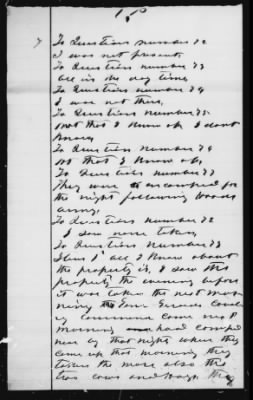 To Question number 72
I was not present,
To Question number 73
all in the day time,
To Question number 74
I was not there,
To Question number 75.
not that I know of, I dont
know,
To Question number 76
not that I know of,
To Question number 77
They were encamped for
the night following
army.
To Question number 72
I saw none taken,
To Question number 78
thats all I know about
the property is, I saw this
property the evening before
it was taken the next mor
ning
command came up
morning had camped
near by that night when they
came up that morning they
taken the mare also the
two cows and hogs they